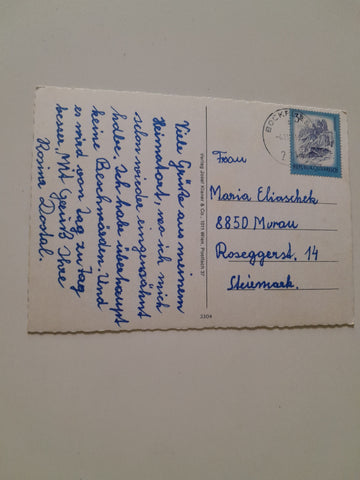 Viele Grüße aus meinem
Heimatort, wo ich mich
schon wieder eingewöhnt
habe. Ich habe überhaupt
keine Beschwerden. Und
es wird von Tag zu Tag
besser. Mit Gruß Ihre
Rosina Dostal.
Verlag Josef Kramer & Co., 1011 Wien, Postfach 37
3304
BOCKF
REPUBLIK ÖSTERREICH
Frau
Maria Eliaschek
8850 Murau
Roseggerst. 14
Steiermark.